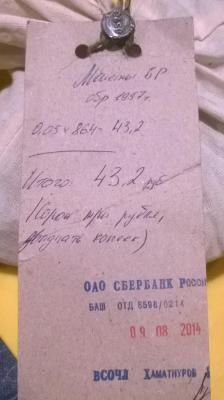 Монеты БР
обр 1997г
0.05 × 864 = 43,2
Итого: 43,2 руб
(Сорок три рубля,
двадцать копеек)
ОАО СБЕРБАНК РОССИ
БАШ ОТД 8598/0214
09 08 2014
ВСОЧЛ ХАМАТНУРОВ